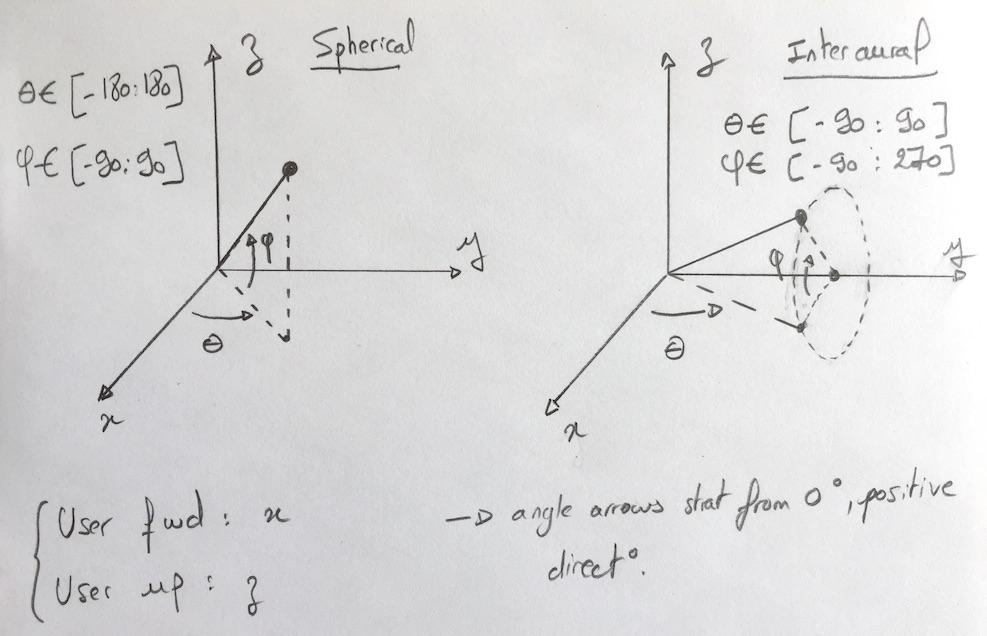 Spherical
z
θ∈ [-180:180]
φ∈ [-90:90]
φ
y
θ
x
Interaural
z
θ∈ [-90:90]
φ∈ [-90:270]
y
φ
θ
x
User fwd: x
User up: z
→ angle arrows strat from 0°, positive
direct°.